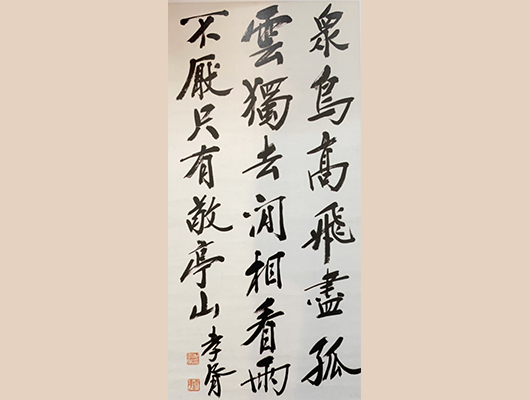 衆鳥高飛盡孤
雲獨去閒相看兩
不厭只有敬亭山
孝胥